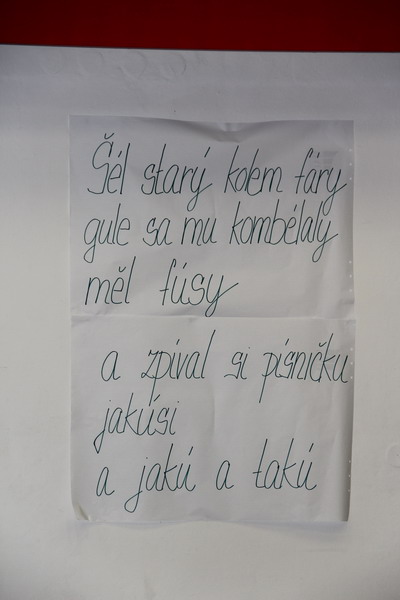 Šél starý kolem fáry
gule sa mu kombélaly
měl fúsy
a zpíval si písničku
jakúsi
a jakú a takú